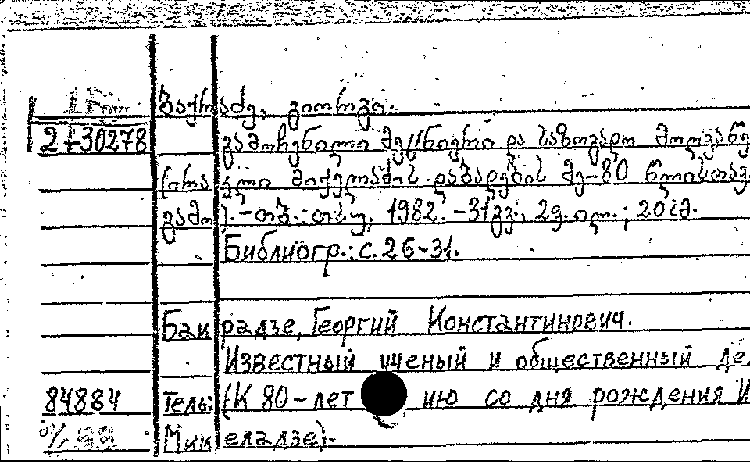 ბაქრაძე, გიორგი.
2-30278 გამოჩენილი მეცნიერი და საზოგადო მოღვაწე
(ირაკლი მიქელაძის დაბადების მე-80 წლისთავ
გამო).-თბ.: თსუ, 1982.-31გვ., 29. ილ.; 20სმ.
Библиогр.: с. 26-31.
Бакрадзе, Георгий Константинович.
Известный ученый и общественный де
84884 тель (К 80-лет ию со дня рождения И
Микеладзе).